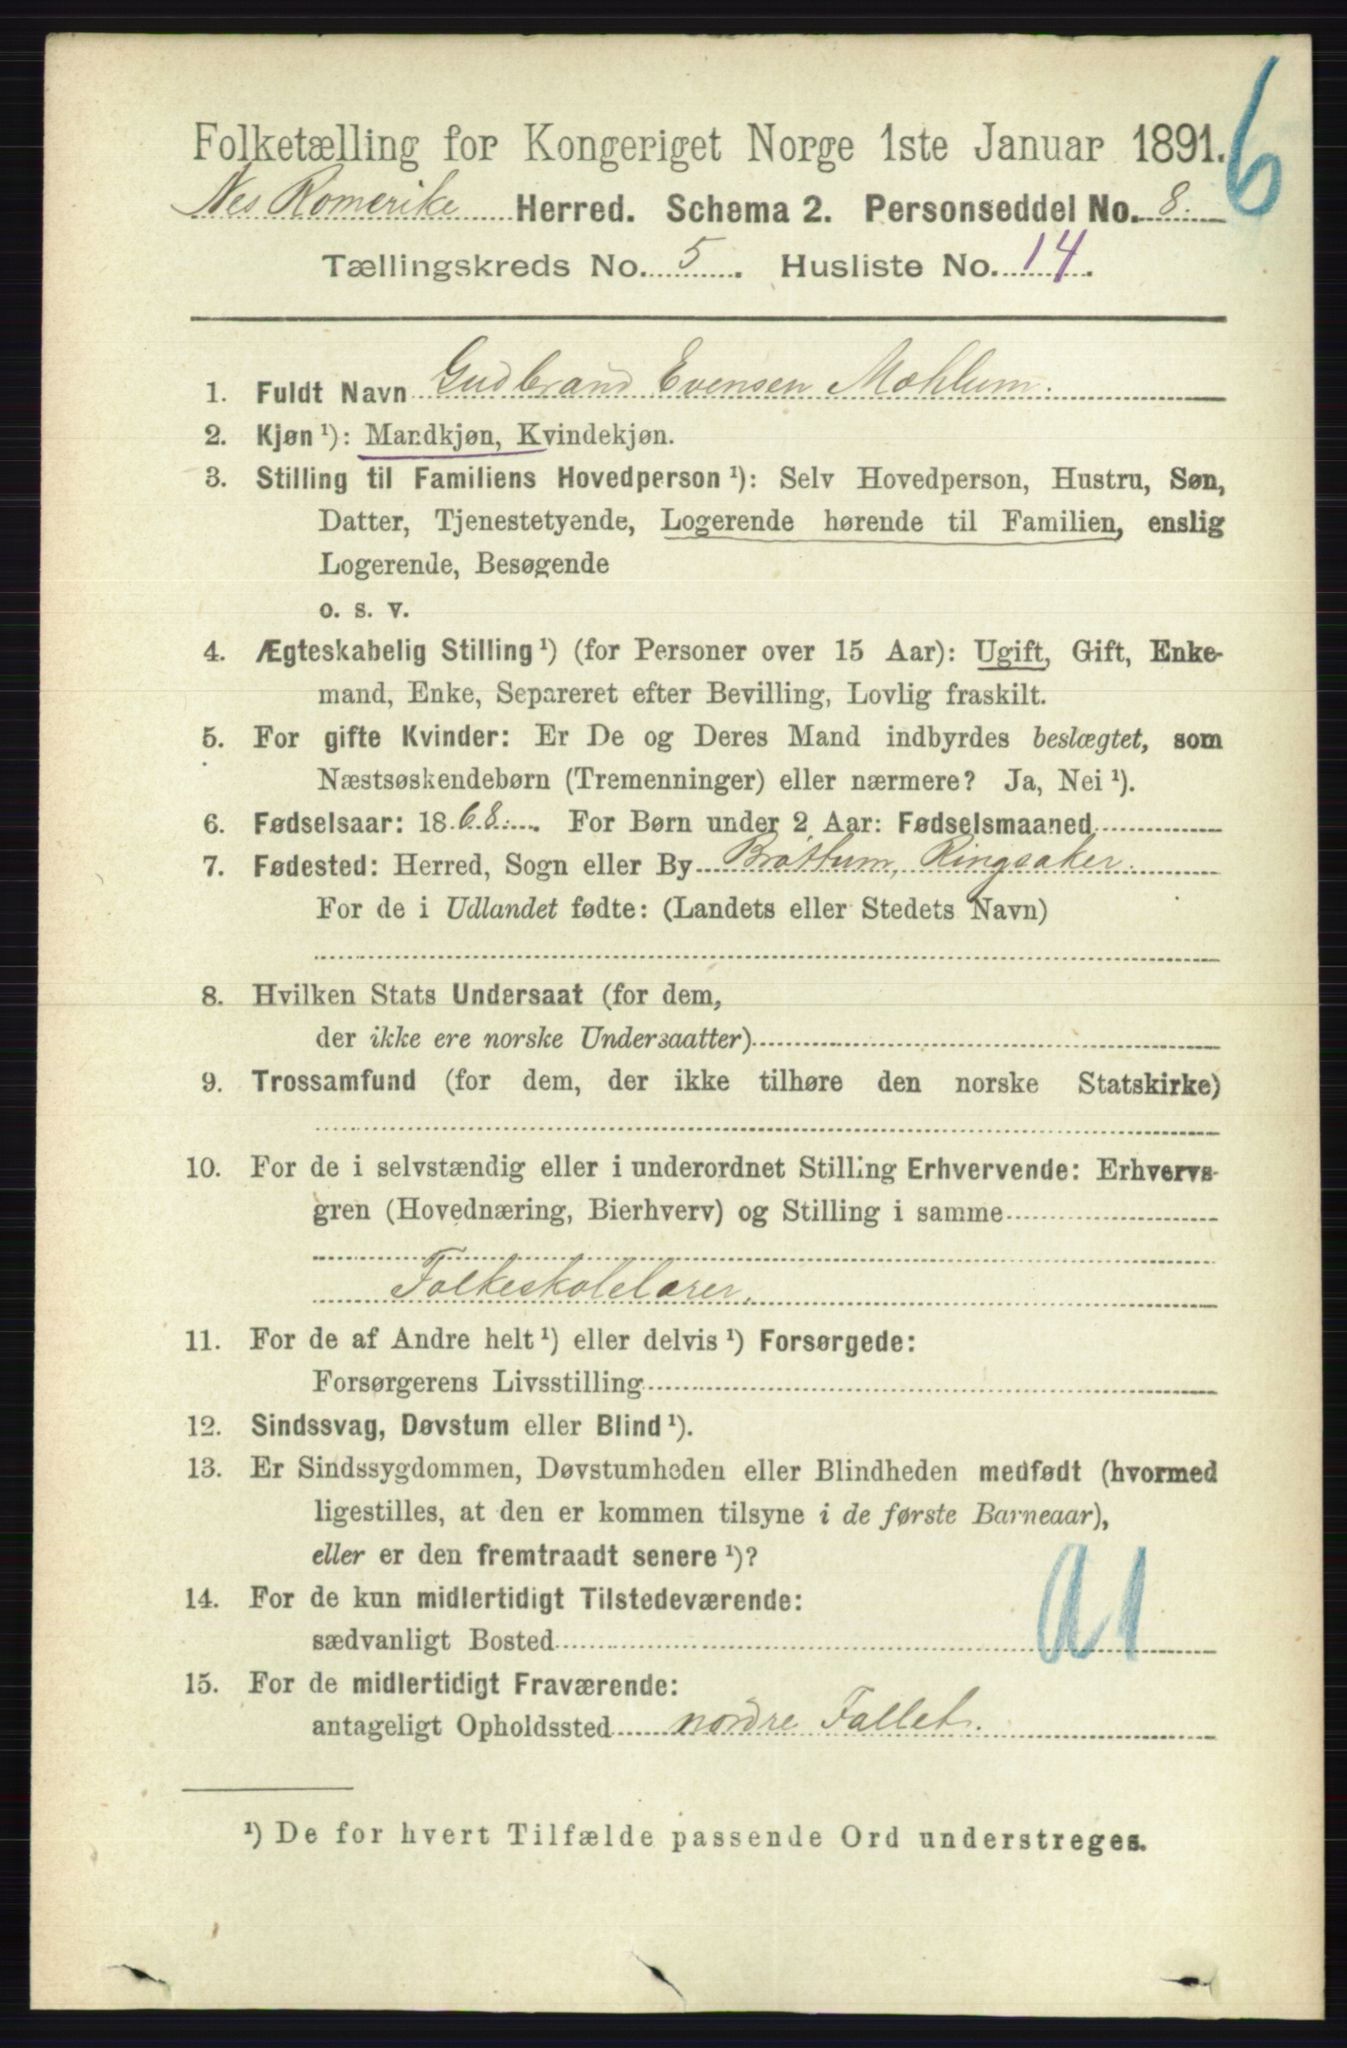 6
Folketælling for Kongeriget Norge 1ste Januar 1891.
Nes Romerike Herred. Schema 2. Personseddel No. 8.
Tællingskreds No. 5. Husliste No. 14.
1. Fuldt Navn Gudbrand Evensen Mæhlum.
2. Kjøn ¹): Mandkjøn, Kvindekjøn.
3. Stilling til Familiens Hovedperson ¹): Selv Hovedperson, Hustru, Søn,
Datter, Tjenestetyende, Logerende hørende til Familien, enslig
Logerende, Besøgende
o. s. v.
4. Ægteskabelig Stilling ¹) (for Personer over 15 Aar): Ugift, Gift, Enke-
mand, Enke, Separeret efter Bevilling, Lovlig fraskilt.
5. For gifte Kvinder: Er De og Deres Mand indbyrdes beslægtet, som
Næstsøskendebørn (Tremenninger) eller nærmere? Ja, Nei ¹).
6. Fødselsaar: 1868. For Børn under 2 Aar: Fødselsmaaned
7. Fødested: Herred, Sogn eller By Brøttum, Ringsaker.
For de i Udlandet fødte: (Landets eller Stedets Navn)
8. Hvilken Stats Undersaat (for dem,
der ikke ere norske Undersaatter)
9. Trossamfund (for dem, der ikke tilhøre den norske Statskirke)
10. For de i selvstændig eller i underordnet Stilling Erhvervende: Erhvervs-
gren (Hovednæring, Bierhverv) og Stilling i samme
Folkeskolelærer.
11. For de af Andre helt ¹) eller delvis ¹) Forsørgede:
Forsørgerens Livsstilling
12. Sindssvag, Døvstum eller Blind ¹).
13. Er Sindssygdommen, Døvstumheden eller Blindheden medfødt (hvormed
ligestilles, at den er kommen tilsyne i de første Barneaar),
eller er den fremtraadt senere ¹)?
14. For de kun midlertidigt Tilstedeværende:
sædvanligt Bosted
a1
15. For de midlertidigt Fraværende:
antageligt Opholdssted nordre Fallet.
¹) De for hvert Tilfælde passende Ord understreges.